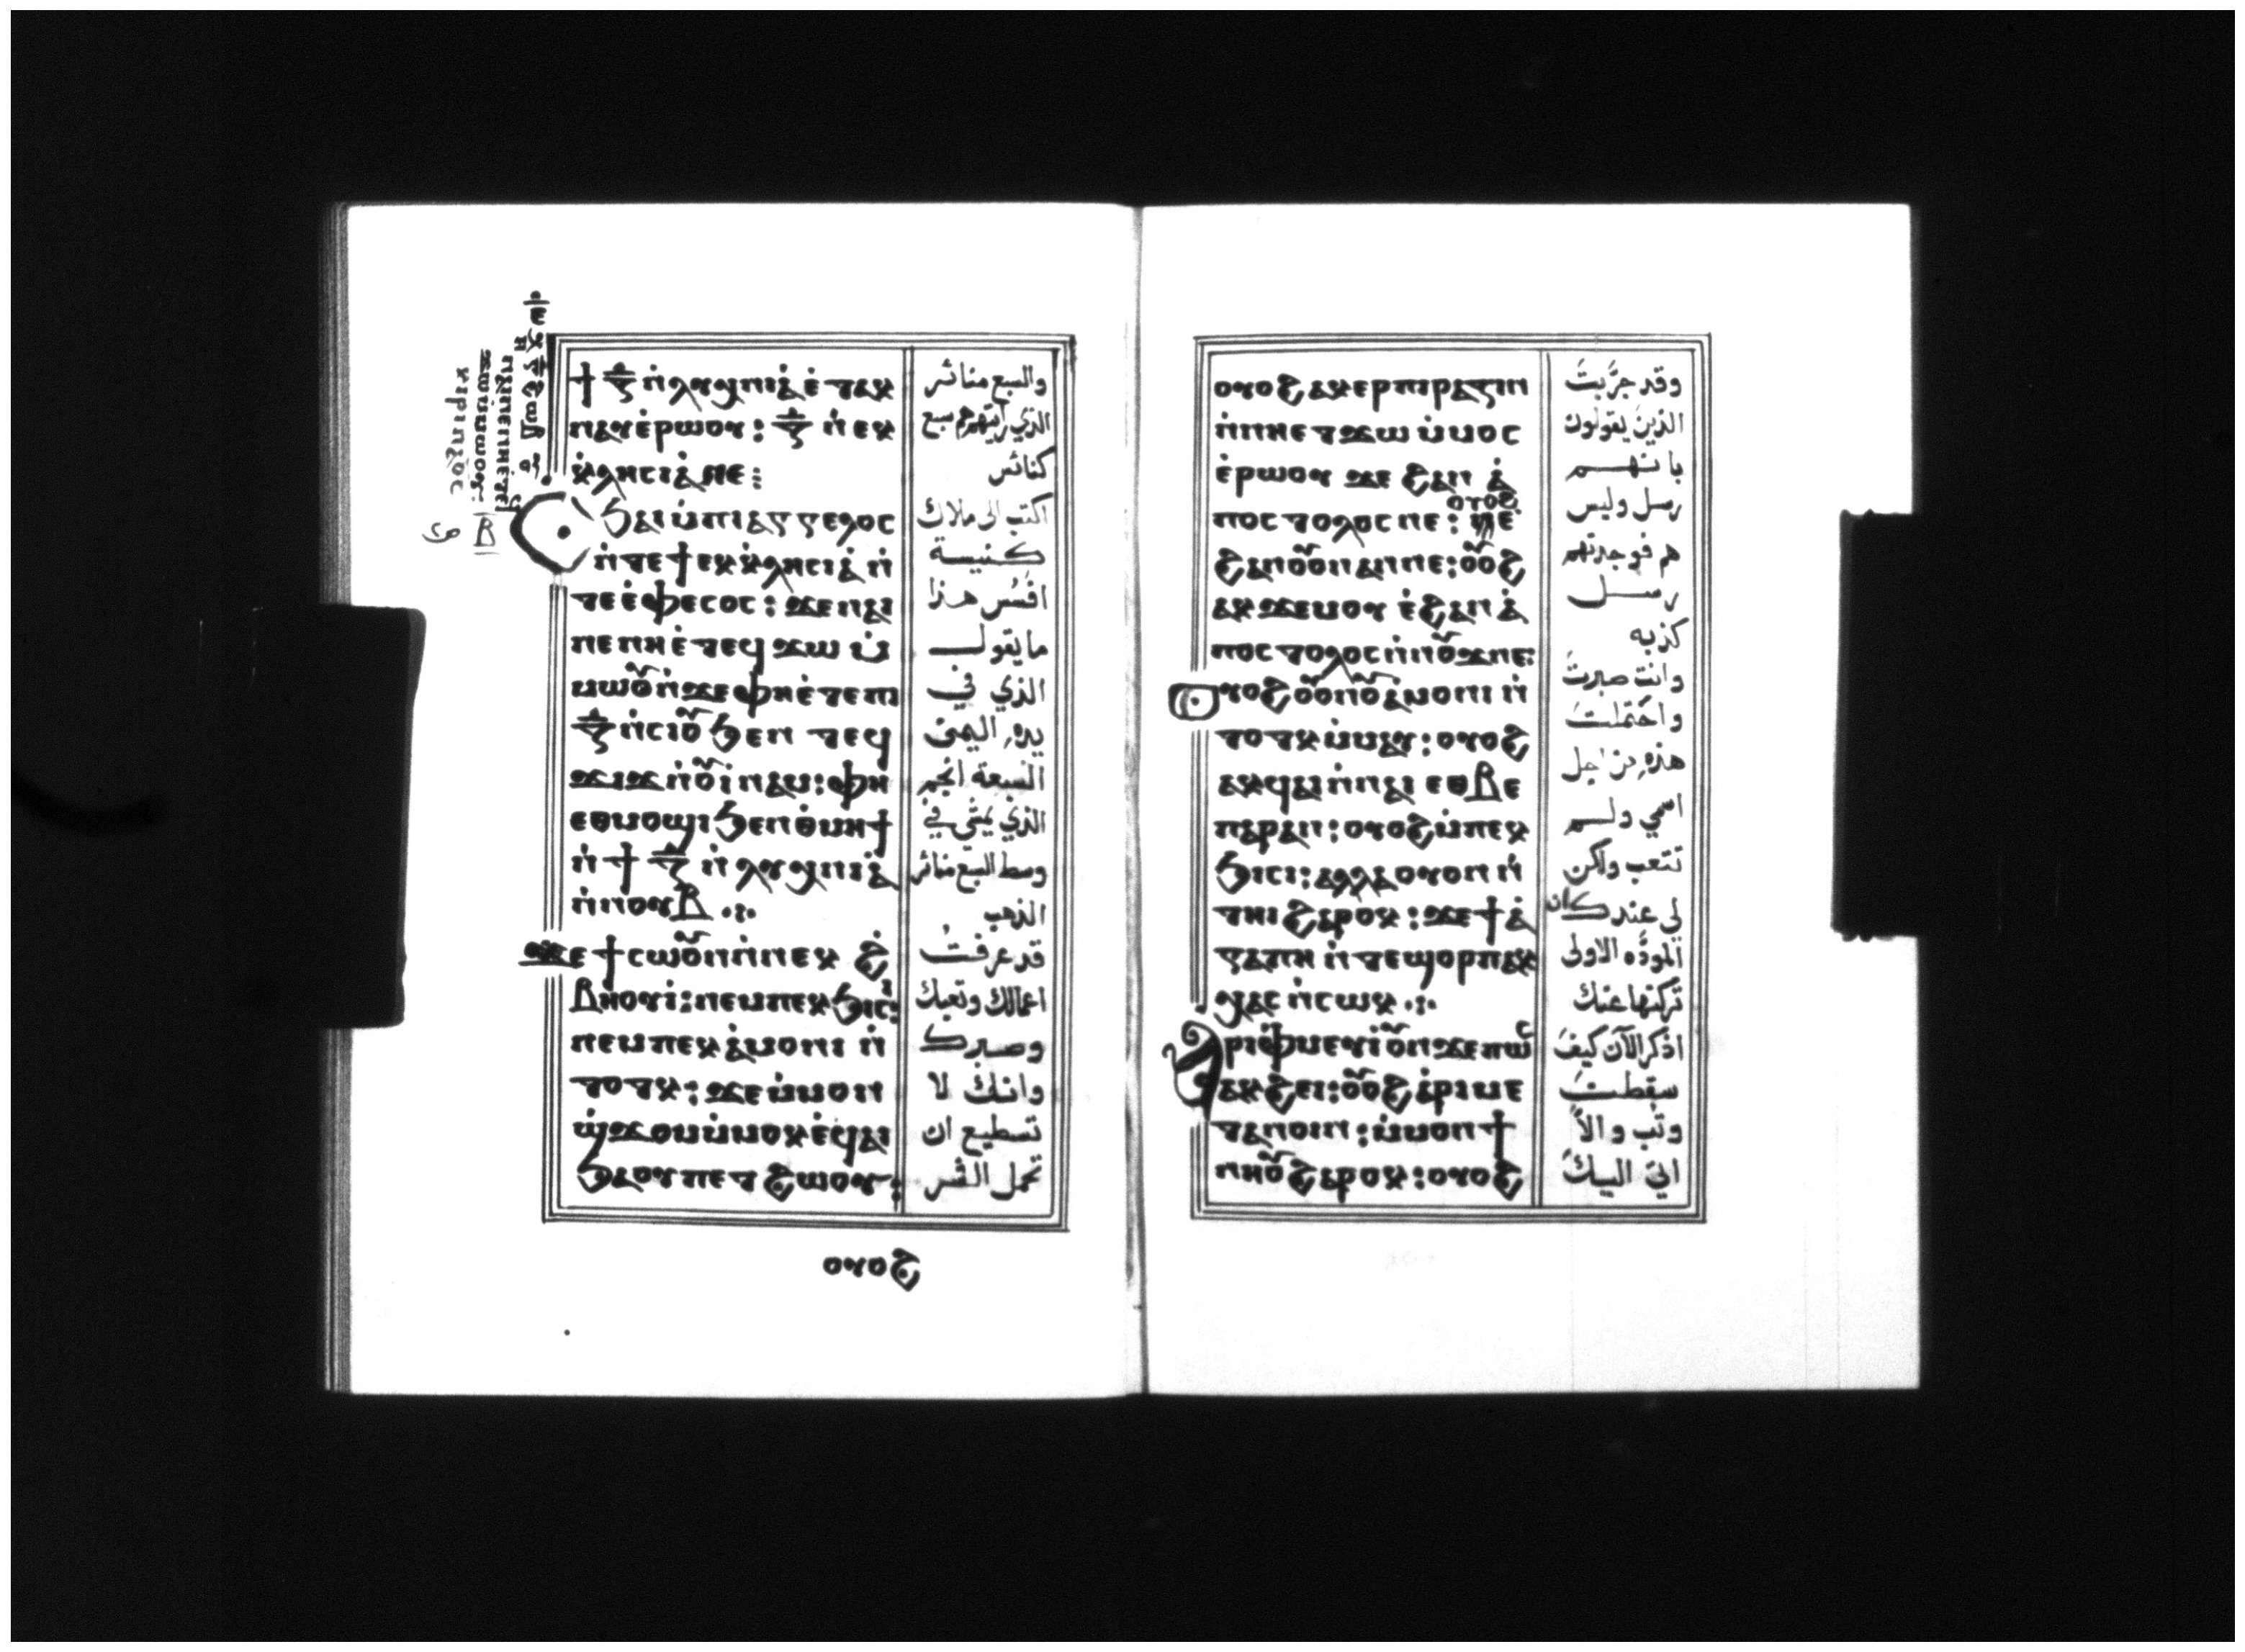 ϯ ⲍ̅ ⲛ̀ⲗⲩⲭⲛⲓⲁ̀ ⲉ̀ⲧⲁⲕ
ⲛⲁⲩⲉ̀ⲣⲱⲟⲩ: ⲍ̅ ⲛ̀ⲉⲕ
ⲕ̀ⲗⲏⲥⲓⲁ̀ⲛⲉ:
Ⲥϧⲁⲓ ⲙ̀ⲡⲓⲁⲅⲅⲉⲗⲟⲥ
ⲛ̀ⲧⲉϯⲉⲕⲕ̀ⲗⲏⲥⲓⲁ̀ ⲛ̀
ⲧⲉⲉ̀ⲫⲉⲥⲟⲥ: ϫⲉⲛⲁⲓ
ⲛⲉⲛⲏⲉ̀ⲧⲉϥϫⲱ ⲙ̀
ⲙⲱⲟⲩⲛ̀ϫⲉⲫⲏⲉ̀ⲧⲉⲡⲓ
ⲍ̅ ⲛ̀ⲥⲓⲟⲩ ϧⲉⲛ ⲧⲉϥ
ϫⲓϫⲛ̀ⲟⲩⲓ̀ⲛⲁⲙ: ⲫⲏ
ⲉⲑⲙⲟϣⲓ ϧⲉⲛⲑⲙⲏϯ
ⲛ̀ϯ ⲍ̅ ⲛ̀ⲗⲩⲭⲛⲓⲁ̀
ⲛ̀ⲛⲟⲩⲃ
ϫⲉϯⲥⲱⲟⲩⲛⲛ̀ⲛⲉⲕ ϩ̀
ⲃⲏⲟⲩⲓ̀: ⲛⲉⲙⲡⲉⲕϧⲓⲥⲓ:
ⲛⲉⲙⲡⲉⲕⲁ̀ⲙⲟⲛⲓ ⲛ̀
ⲧⲟⲧⲕ: ϫⲉⲙ̀ⲙⲟⲛ
ϣ̀ϫⲟⲙⲙ̀ⲙⲟⲕⲉ̀ϥⲁⲓ
ϧⲁⲟⲩⲡⲉⲧϩⲱⲟⲩ:
ⲟⲩⲟϩ
والسبع مناير
الذي رايتهم هم سبع
كنائس
اكتب الى ملاك
كنيسة
افسس هذا
ما يقول
الذي في
يده اليمنى
السبعة انجم
الذي يمشي في
وسط السبع مناير
الذهب
قد عرفتُ
اعمالك وتعبك
وصبرك
وانك لا
تسطيع ان
تحمل الشر
ⲟⲩⲟϩ ⲁⲕⲉⲣⲡⲓⲣⲁⲍⲓⲛ
ⲛ̀ⲛⲏⲉⲧϫⲱ ⲙ̀ⲙⲟⲥ
ⲉ̀ⲣⲱⲟⲩ ϫⲉ ϩⲁⲛ ⲁ̀
ⲡⲟⲥⲧⲟⲗⲟⲥ ⲛⲉ: ⲟⲩⲟϩ
ϩⲁⲛⲟⲩⲟⲛⲁⲛⲛⲉ: ⲟⲩⲟϩ
ⲁⲕϫⲉⲙⲟⲩ ⲉ̀ϩⲁⲛ ⲁ̀
ⲡⲟⲥⲧⲟⲗⲟⲥⲛ̀ⲛⲟⲩϫⲛⲉ:
ⲟⲩⲟϩ ⲟⲩⲟⲛⲟⲩⲁⲙⲟⲛⲓ ⲛ̀
ⲧⲟⲧⲕⲙ̀ⲙⲁⲩ: ⲟⲩⲟϩ
ⲁⲕϥⲁⲓⲛ̀ⲛⲁⲓ ⲉⲑⲃⲉ
ⲡⲁⲣⲁⲛ: ⲟⲩⲟϩⲙ̀ⲡⲉⲕ
ϧⲓⲥⲓ: ⲁⲗⲗⲁⲟⲩⲟⲛ ⲛ̀
ⲧⲏⲓ ϩⲁⲣⲟⲕ: ϫⲉϯⲁ̀
ⲅⲁⲡⲏ ⲛ̀ⲧⲉϣⲟⲣⲡ ⲁⲕ
ⲭⲁⲥ ⲛ̀ⲥⲱⲕ
Ⲁⲣⲓⲫ̀ⲙⲉⲩⲓ̀ⲟⲩⲛϫⲉⲡⲱⲥ
ⲁⲕϩⲉⲓ: ⲟⲩⲟϩ ⲁ̀ⲣⲓⲙⲉ
ⲧⲁⲛⲟⲓⲛ: ⲙ̀ⲙⲟⲛ ϯ
ⲛⲏⲟⲩ ϩⲁⲣⲟⲕ: ⲟⲩⲟϩ
وقد جرّبتَ
الذين يقولون
بانهم
رسل وليس
هم فوجدتهم
رسل
كذبه
وانت صبرتَ
واحتملت
هذه من اجل
اسمي ولم
تتعب ولكن
لي عندك ان
المودّه الاولى
تركتها عنك
اذكر الآن كيفَ
سقطت
وتب والّا
اتي اليك